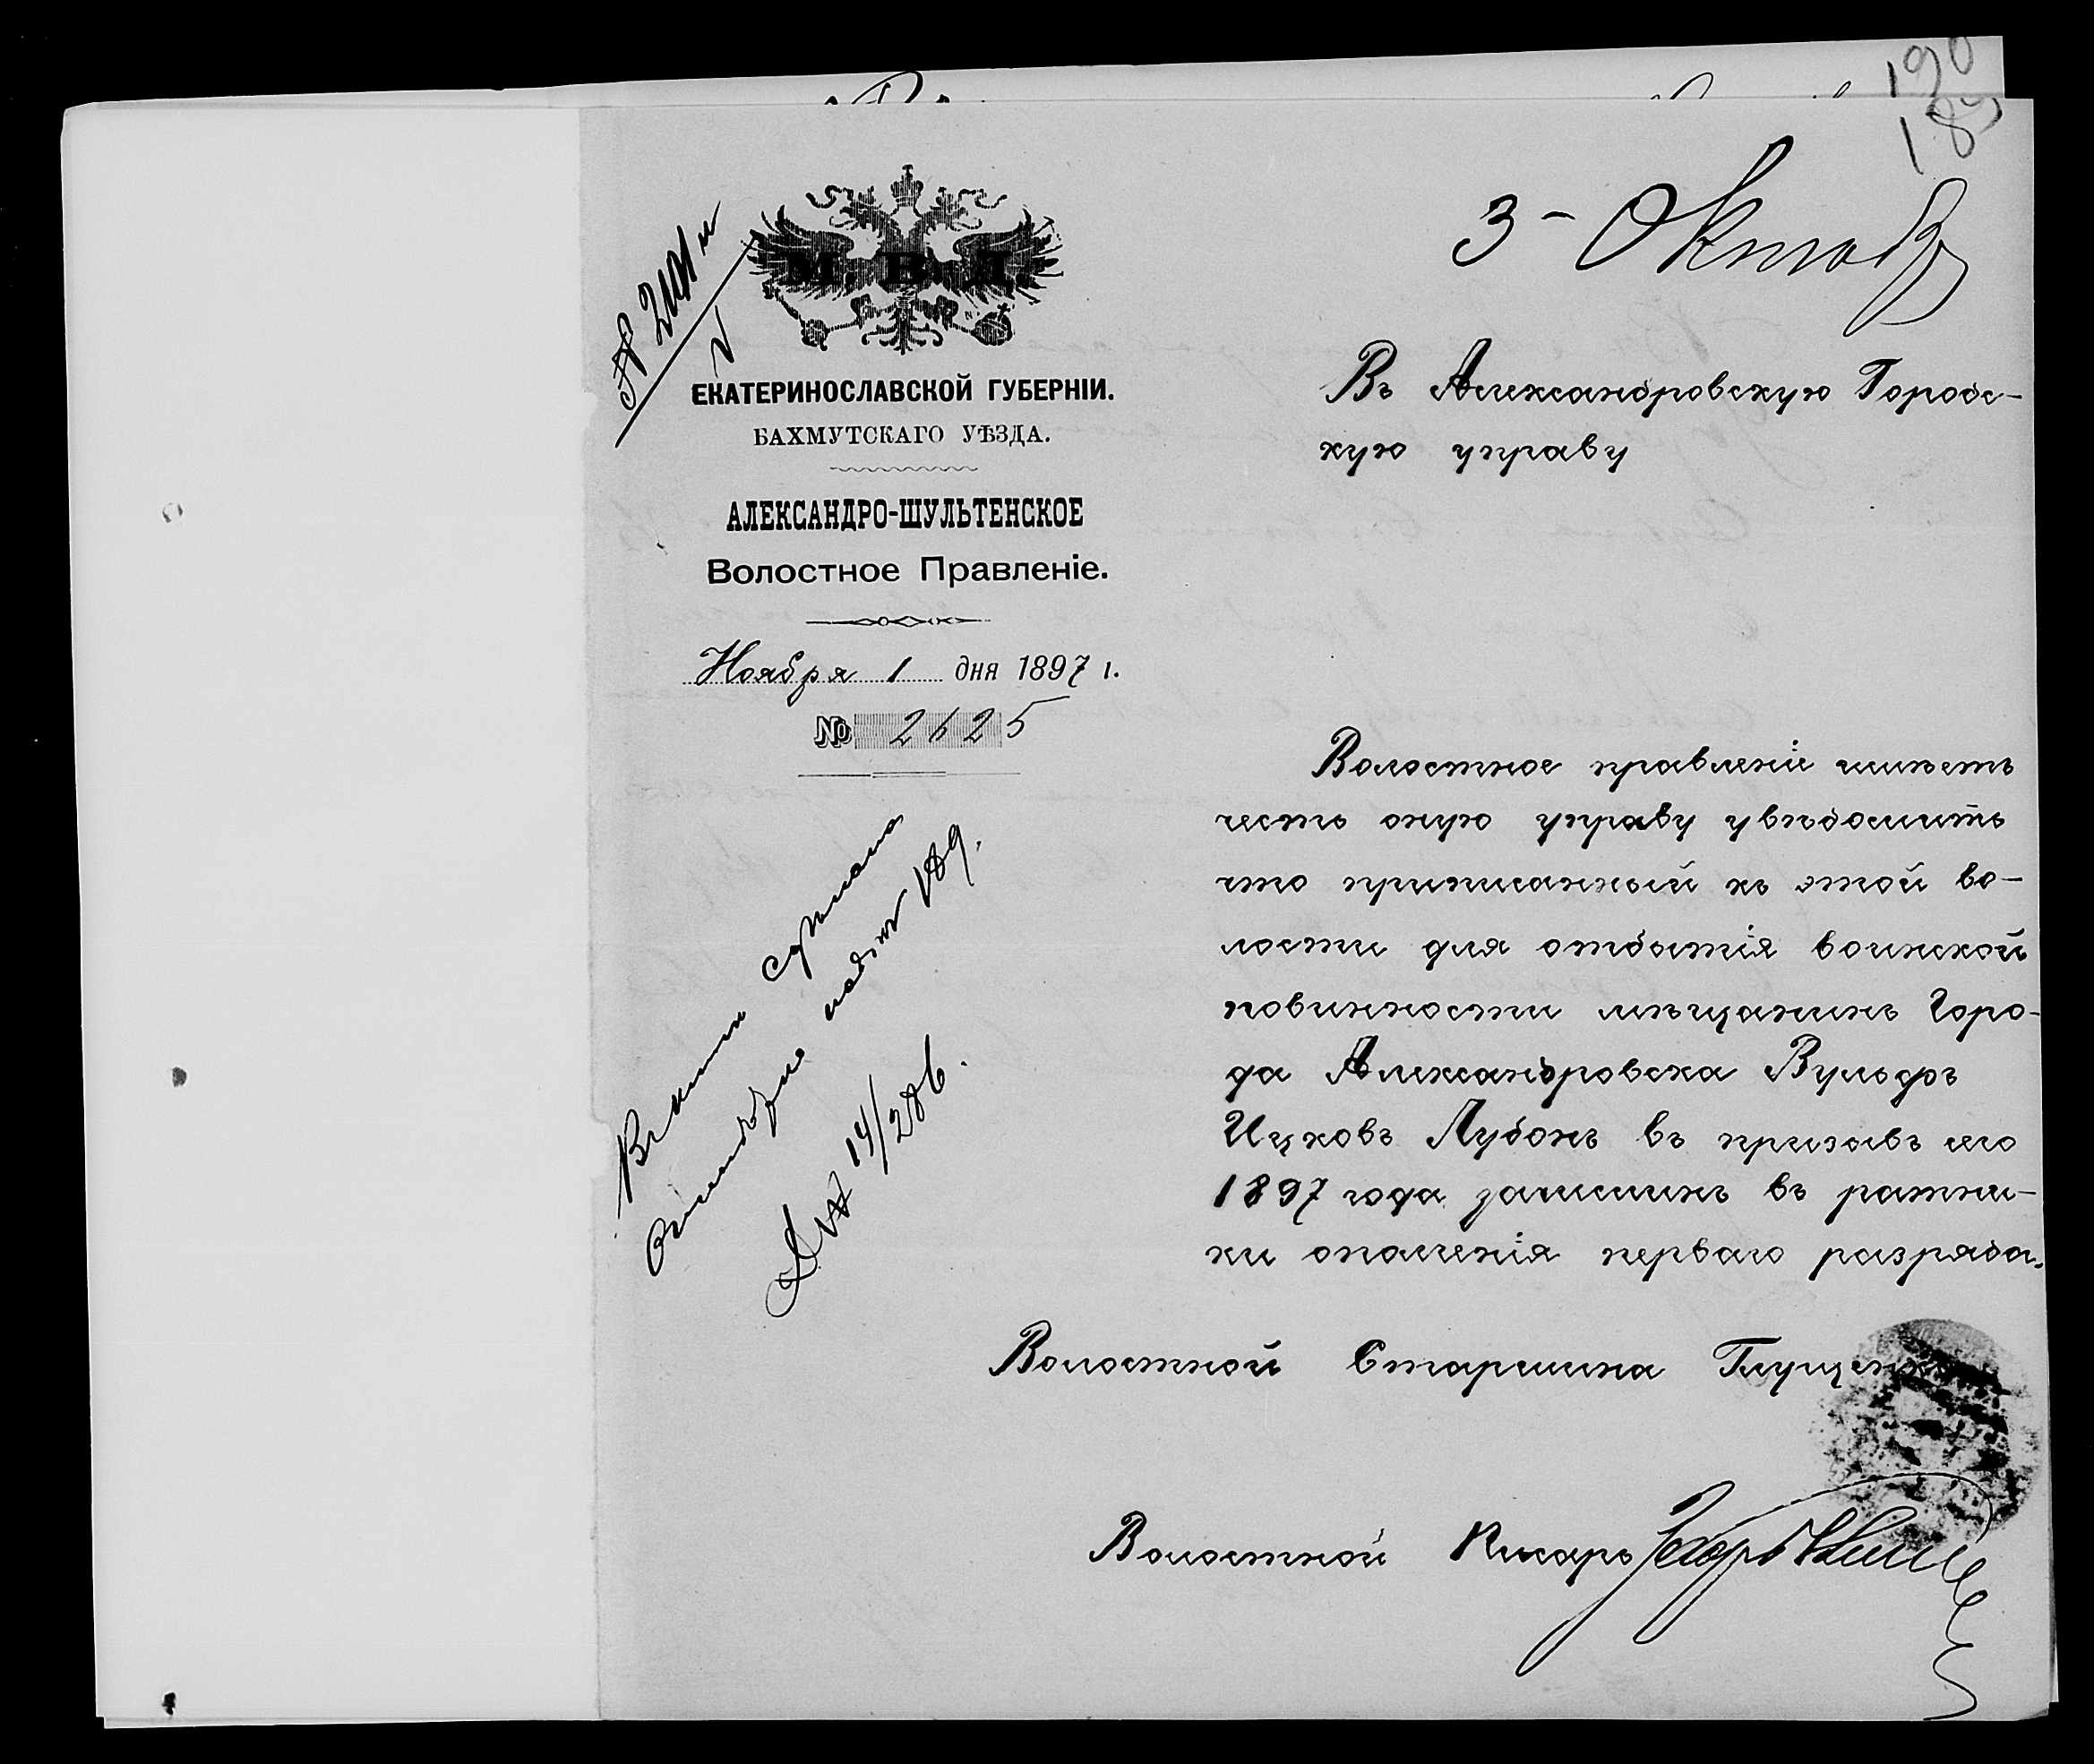 190
189
3 - Октяб
№ 2401
М. В. Д.
ЕКАТЕРИНОСЛАВСКОЙ ГУБЕРНІИ.
БАХМУТСКАГО УѢЗДА.
АЛЕКСАНДРО-ШУЛЬТЕНСКОЕ
Волостное Правленіе.
Ноября 1 дня 1897 г.
№ 2625
Въ Александровскую Городс-
кую управу
Волостное правленіе имѣетъ
честь оную управу увѣдомить
что приписанный къ этой во-
лости для отбытія воинской
повинности мѣщанинъ Горо-
да Александровска Вульфъ
Ицковъ Лубонъ въ призывъ сего
1897 года зачисленъ въ ратни-
ки ополченія перваго разряда.
Волостной Старшина Глущенко
Волостной Писарь